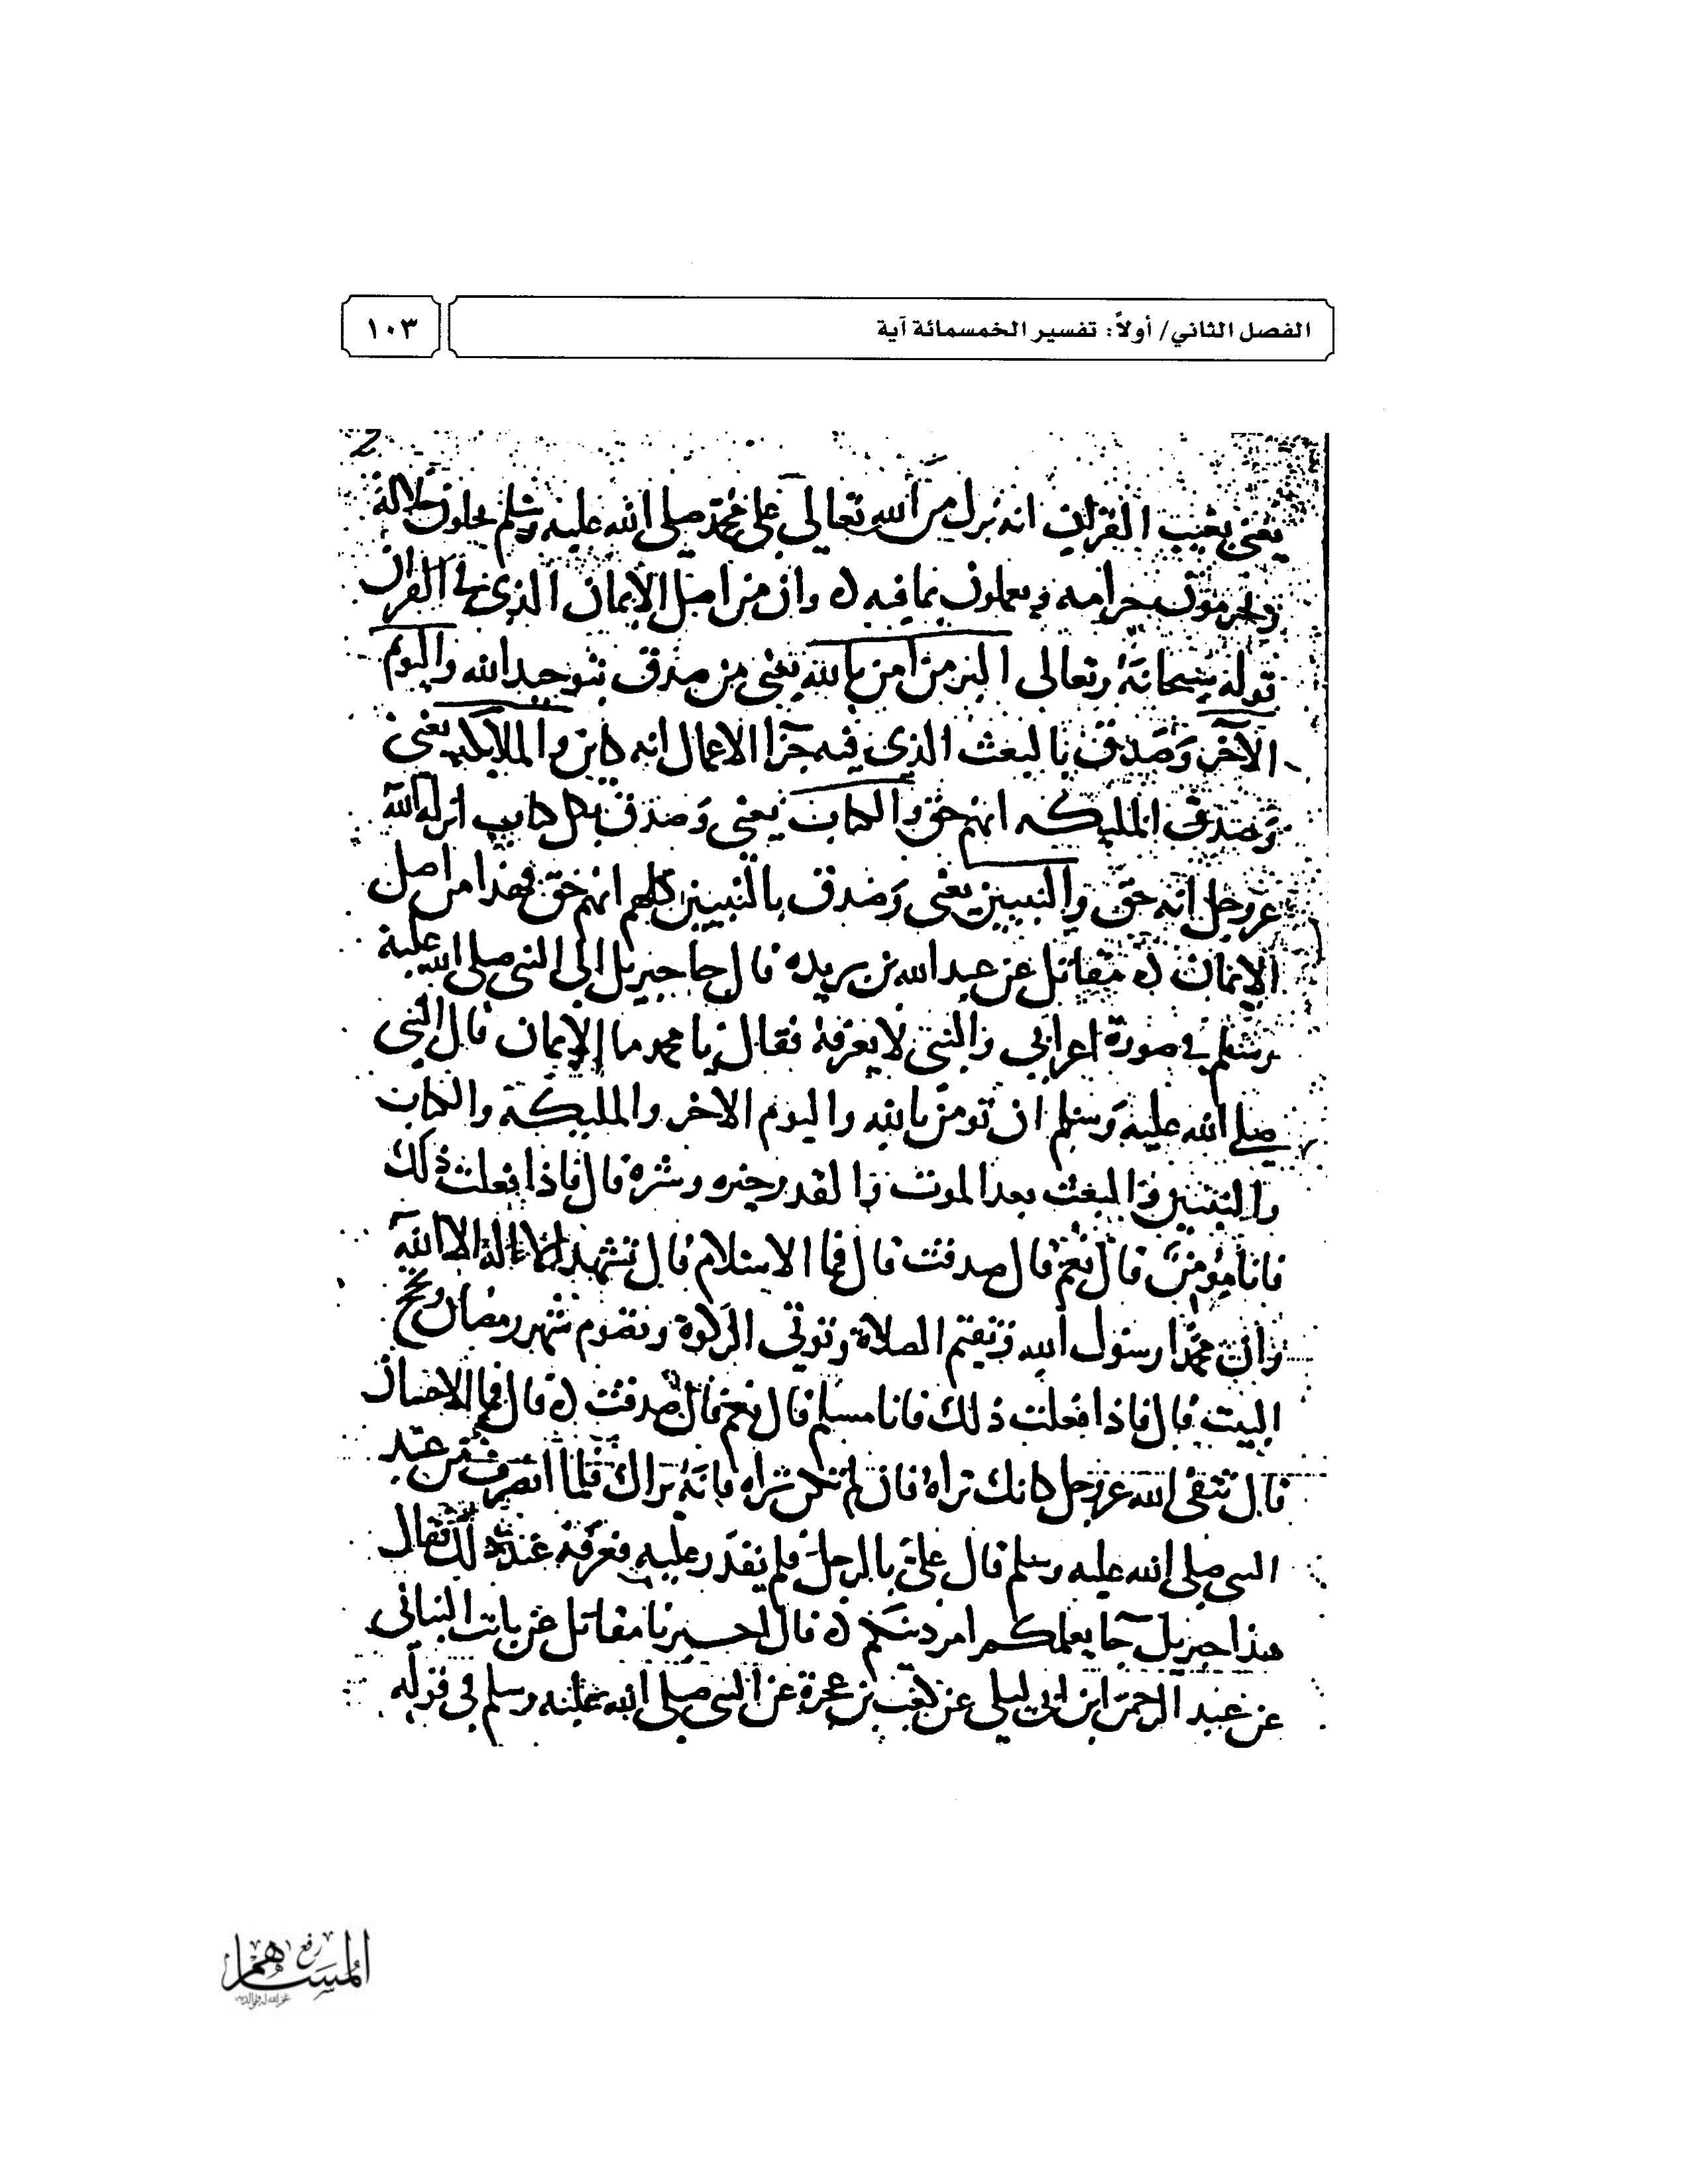 الفصل الثاني/ أولاً: تفسير الخمسمائة آية
١٠٣
يعني بغيب القران انه نزل من الله تعالى على محمد صلى الله عليه وسلم يحلون حلاله
ويحرمون حرامه ويعملون بما فيه ه وان من اصل الايمان الذي في القران
قوله سبحانه وتعالى البر من امن بالله يعني من صدق بتوحيد الله واليوم
الآخر وصدق بالبعث الذي فيه جزا الاعمال انه كاين والملايكه يعني
وصدق الملىكه انهم حق والكتاب يعني وصدق بكل كتاب انزله الله
عز وجل انه حق والنبيين يعني وصدق بالنبيين كلهم انهم حق فهذا من اصل
الايمان ه مقاتل عن عبد الله بن بريده قال جا جبريل الى النبي صلى الله عليه
وسلم في صورة اعرابي والنبي لا يعرفه فقال يا محمد ما الايمان قال النبي
صلى الله عليه وسلم ان تومن بالله واليوم الاخر والمليكة والكتاب
والنبيين والبعث بعد الموت والقدر خيره وشره قال فاذا فعلت ذلك
فانا مؤمن قال نعم قال صدقت قال فما الاسلام قال تشهد ان لا اله الا الله
وان محمدا رسول الله وتقيم الصلاة وتوتي الزكوة وتصوم شهر رمضان وتحج
البيت قال فاذا فعلت ذلك فانا مسلم قال نعم قال صدقت ه قال فما الاحسان
قال تتقي الله عز وجل كانك تراه فان لم تكن تراه فانه يراك فلما انصرف من عند
النبي صلى الله عليه وسلم قال علي بالرجل فلم يقدر عليه فعرفه عند ذلك فقال
هذا جبريل جا يعلمكم امر دينكم ه قال نا مقاتل عن ثابت البناني
عن عبد الرحمن ابن ابي ليلى عن كعب بن عجرة عن النبي صلى الله عليه وسلم في قوله
المساهم